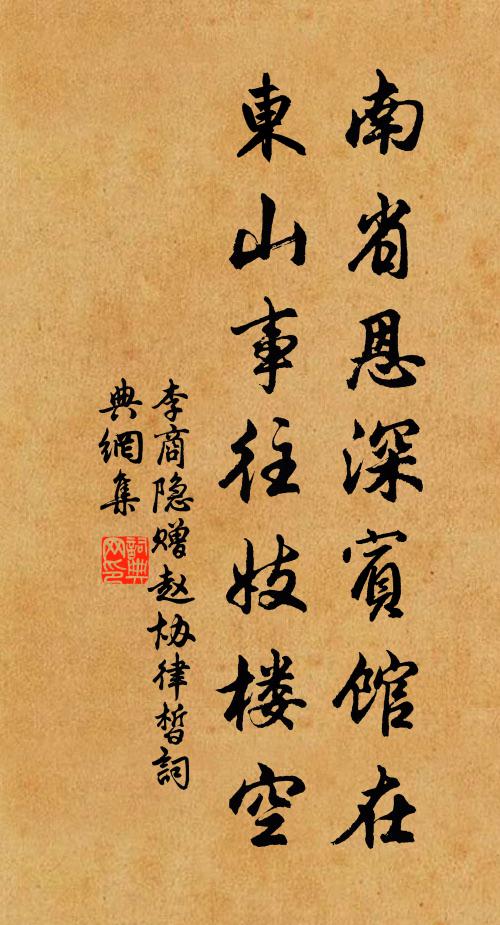 南省恩深賓館在
東山事往妓楼空
李商隐赠赵协律晳詞
典網集
詞典网印